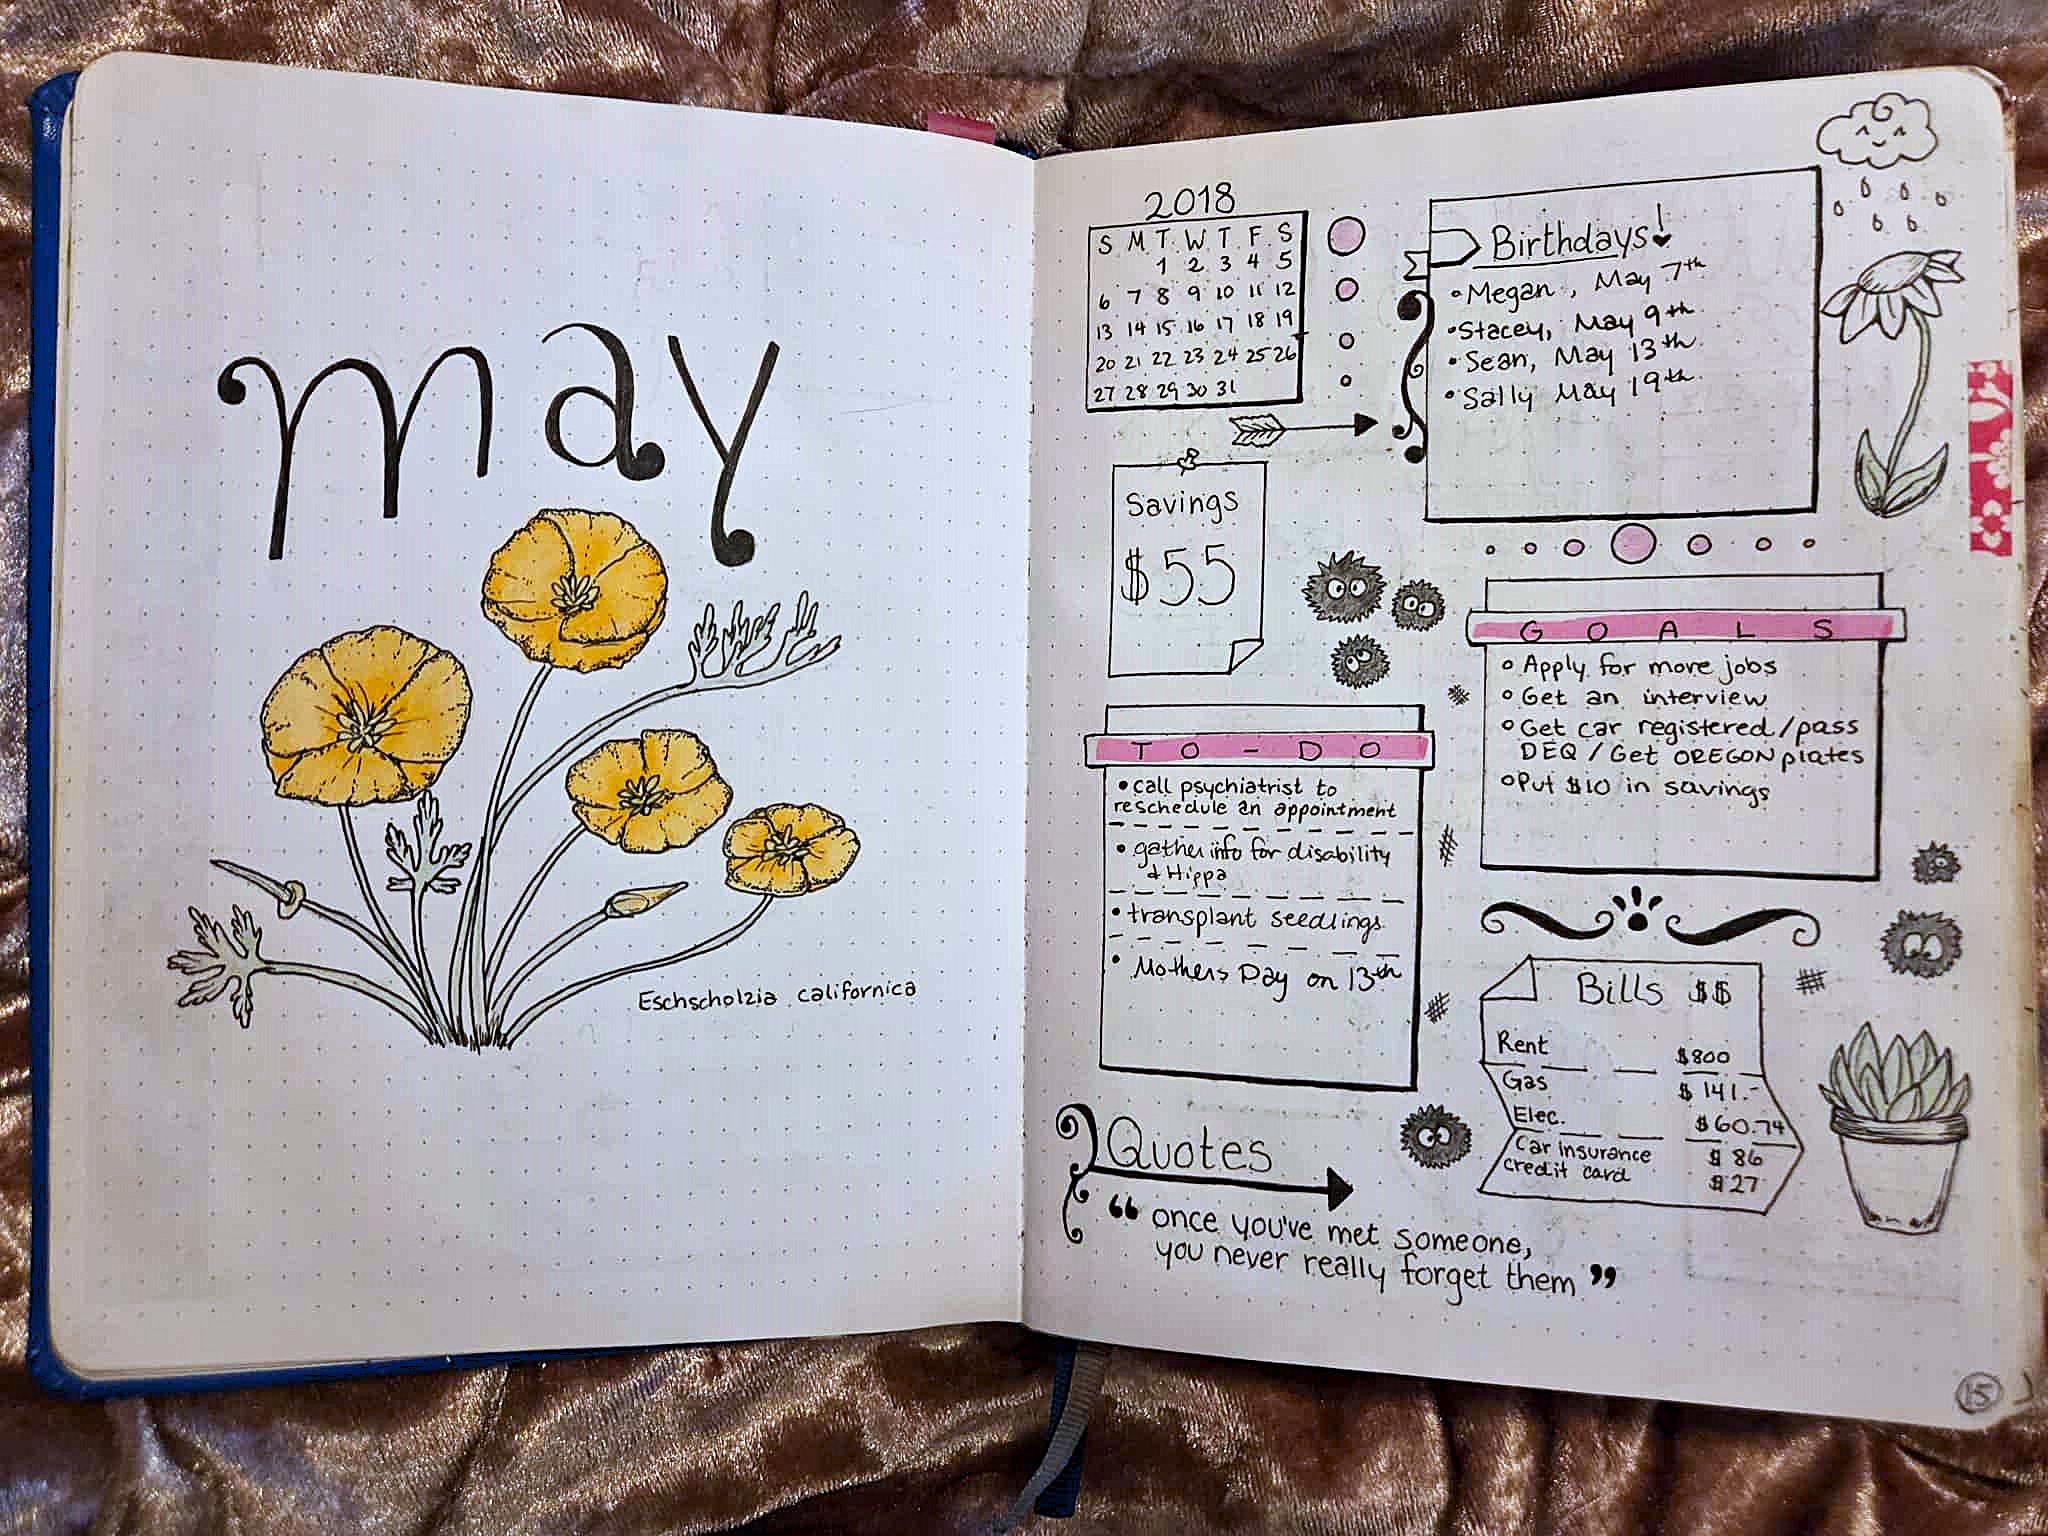 may
Eschscholzia californica
2018
S M T W T F S
1 2 3 4 5
6 7 8 9 10 11 12
13 14 15 16 17 18 19
20 21 22 23 24 25 26
27 28 29 30 31
Birthdays!
• Megan, May 7th
• Stacey, May 9th
• Sean, May 13th
• Sally May 19th
Savings
$55
GOALS
○ Apply for more jobs
○ Get an interview
○ Get car registered/pass
DEQ/Get OREGON plates
○ Put $10 in savings
TO-DO
• call psychiatrist to
reschedule an appointment
• gather info for disability
& Hippa
• transplant seedlings
• Mothers Day on 13th
Bills $$
Rent $800
Gas $141.-
Elec. $60.74
Car insurance $86
credit card $27
Quotes
“once you've met someone,
you never really forget them”
15